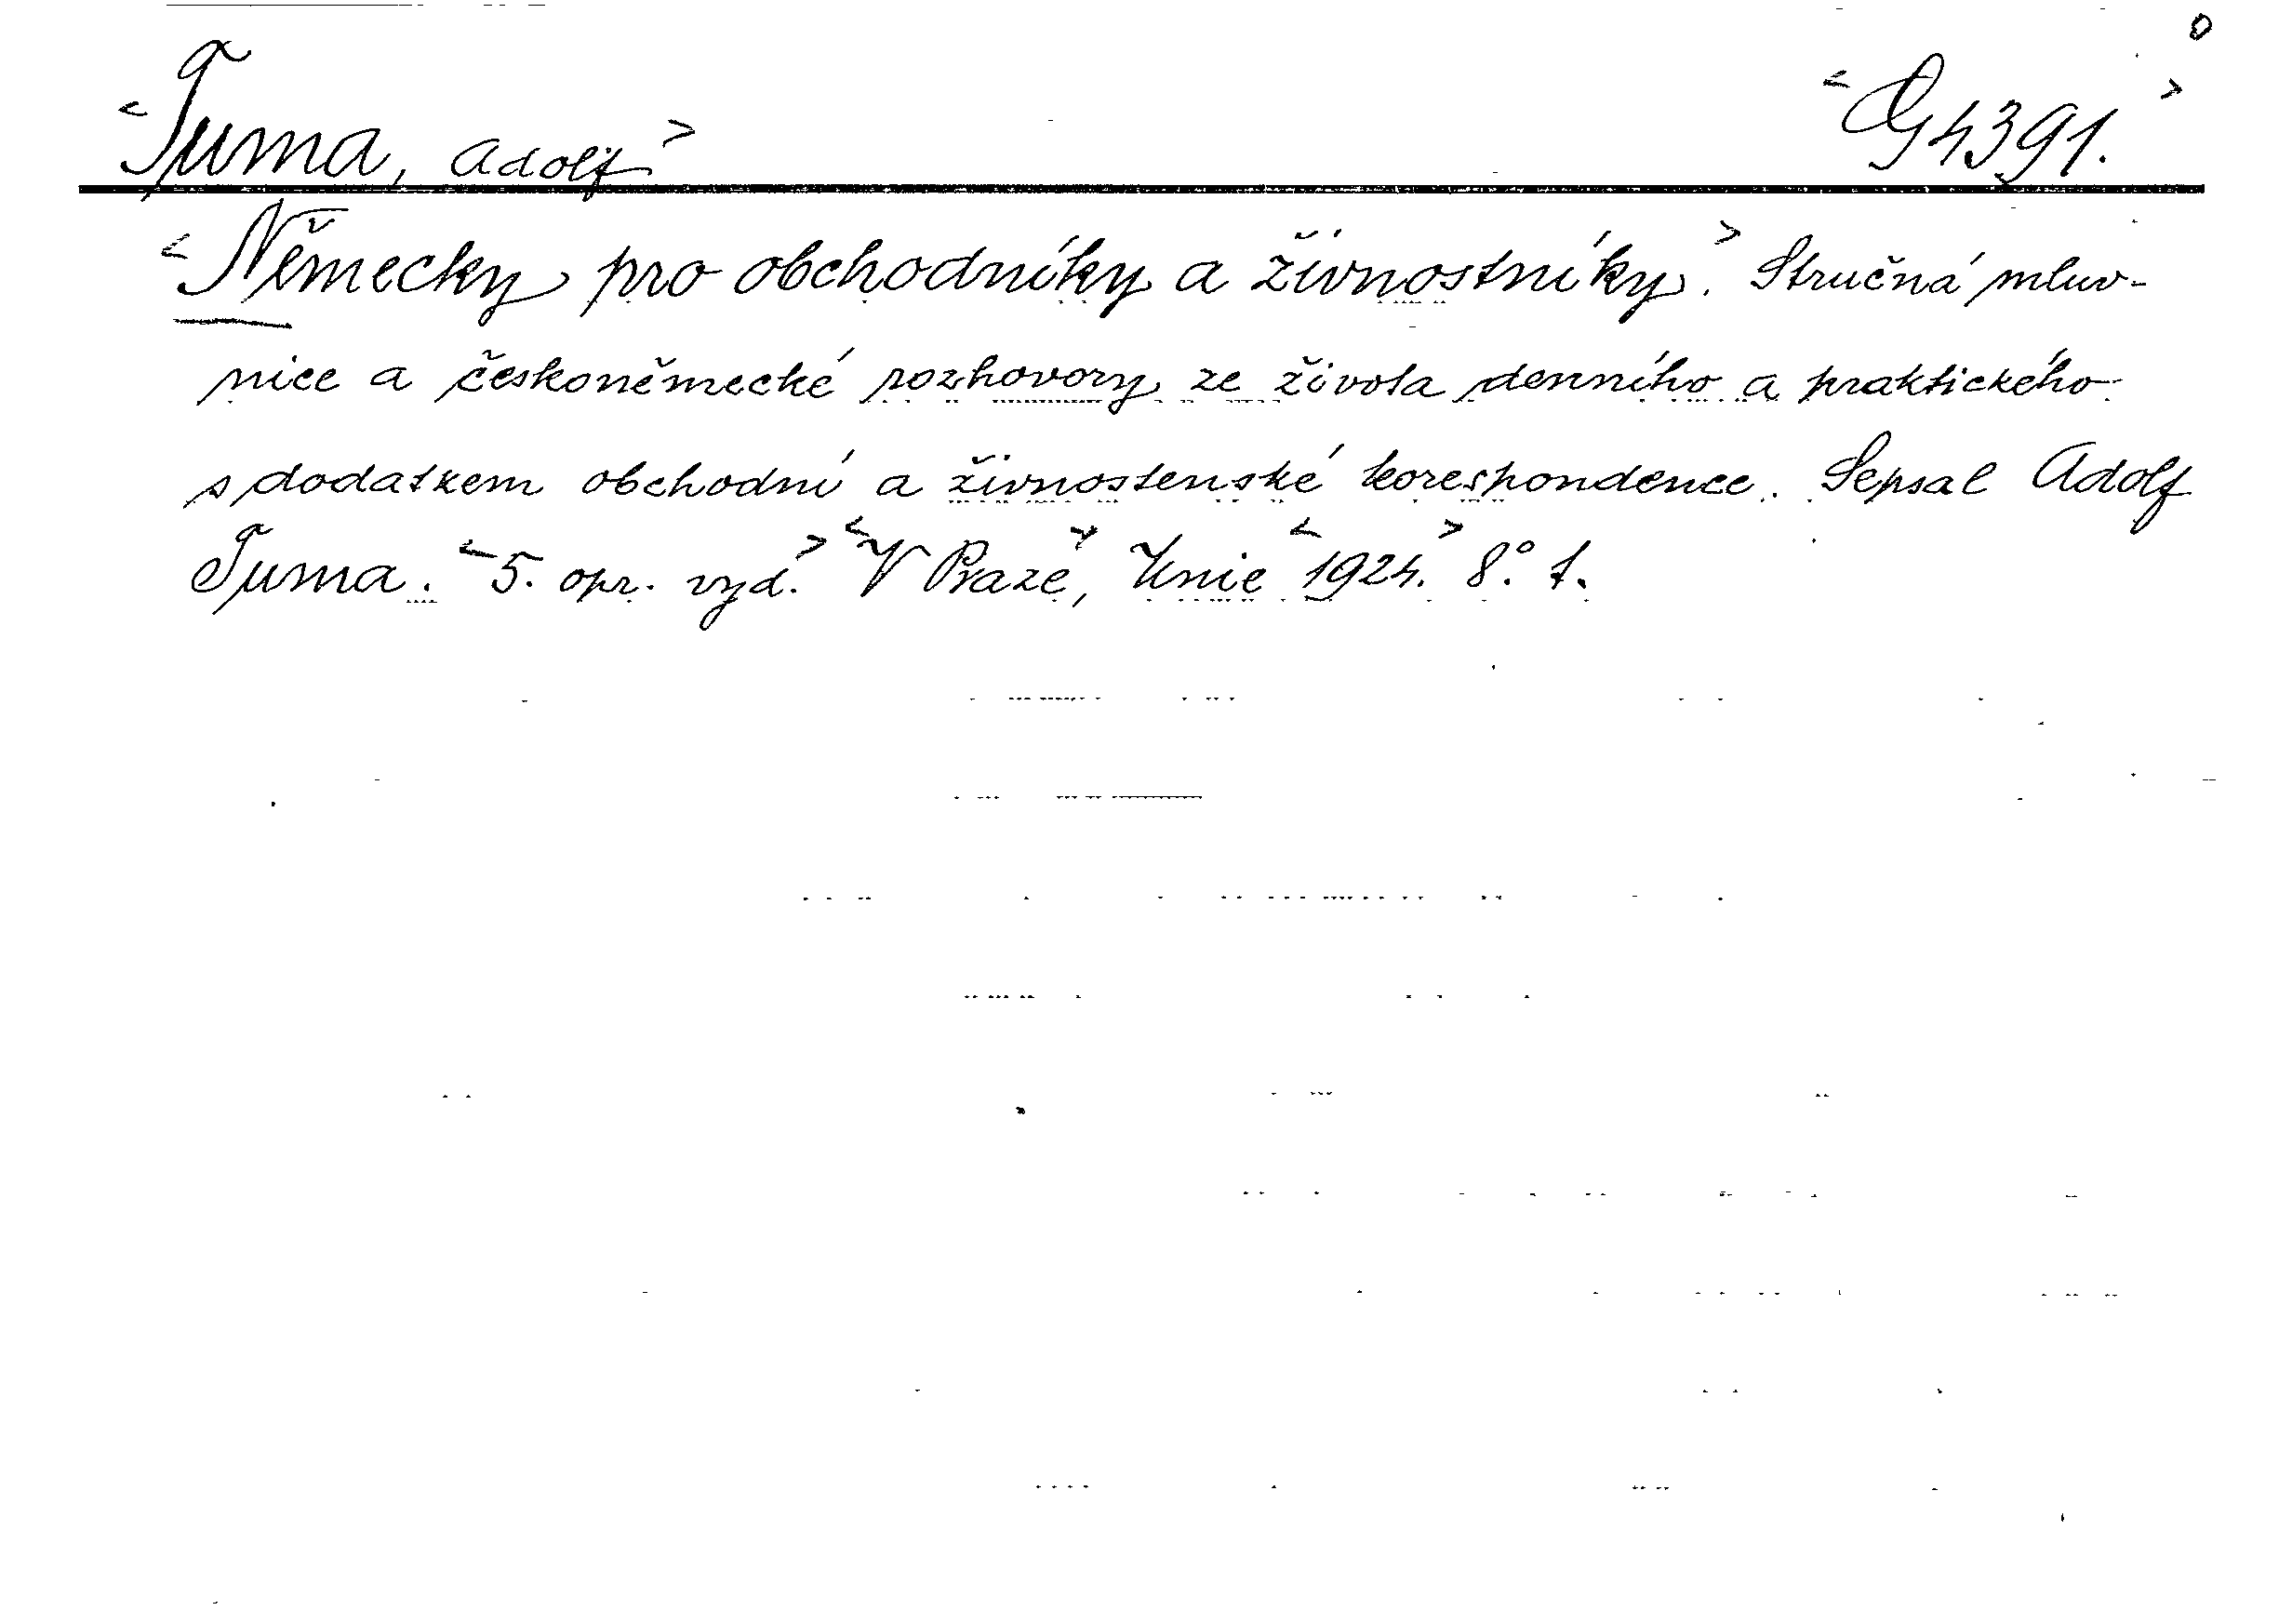 <Tuma, Adolf> <G 4391.>
<Německy pro obchodníky a živnostníky.> Stručná mluv-
nice a českoněmecké rozhovory ze života denního a praktického
s dodatkem obchodní a živnostenské korespondence. Sepsal Adolf
Tuma. <5. opr. vyd.> <V Praze>, Unie <1924.> 8°. 1.